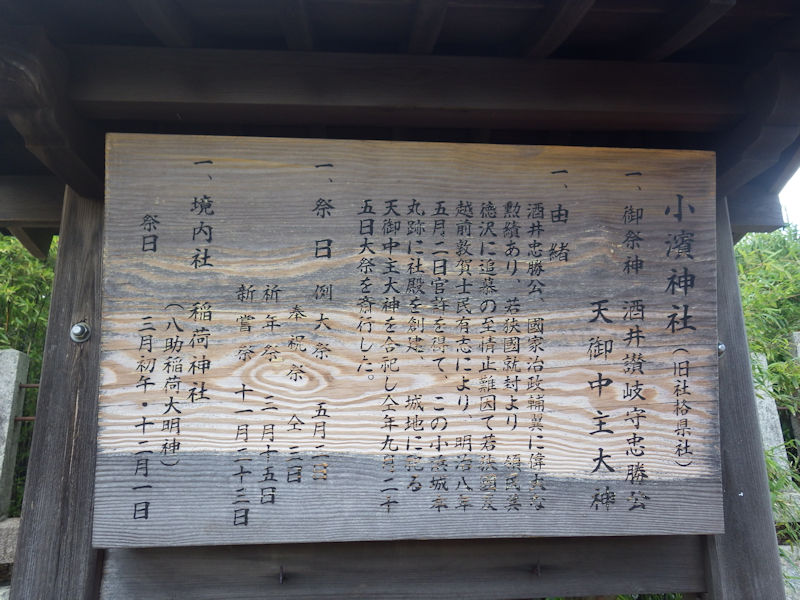 小濱神社（旧社格県社）
一、御祭神 酒井讃岐守忠勝公
天御中主大神
一、由緒
酒井忠勝公、國家治政輔翼に偉大な
勲績あり、若狭國就封より 領民其
徳沢に追慕の至情止難因て若狭
越前敦賀士民有志により、明治八年
五月二日官許を得て、この小浜城本
丸跡に社殿を創建 城地に祀る
天御中主大神を合祀し仝年九月二十
五日大祭を斎行した。
一、祭日 例大祭 五月二日
奉祝祭 仝 三日
祈年祭 三月十五日
新嘗祭 十一月二十三日
一、境内社 稲荷神社
（八助稲荷大明神）
祭日 三月初午・十二月一日